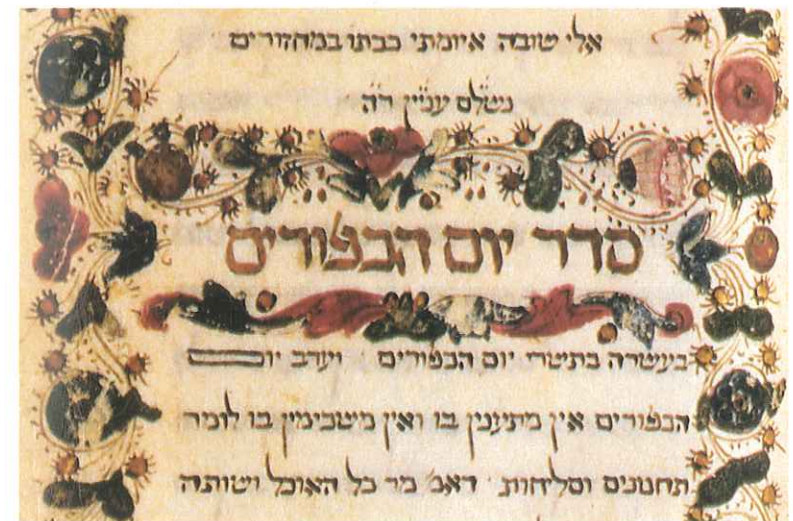 אלי טובה איומתי ככתו במחזורים
נשלם ענין רה
סדר יום הכפורים
בעשרה בתשרי יום הכפורים וערב יום
הכפורים אין מתענין בו ואין משכימין בו לומר
תחנונים וסליחות דאמ׳ מר כל האוכל ושותה